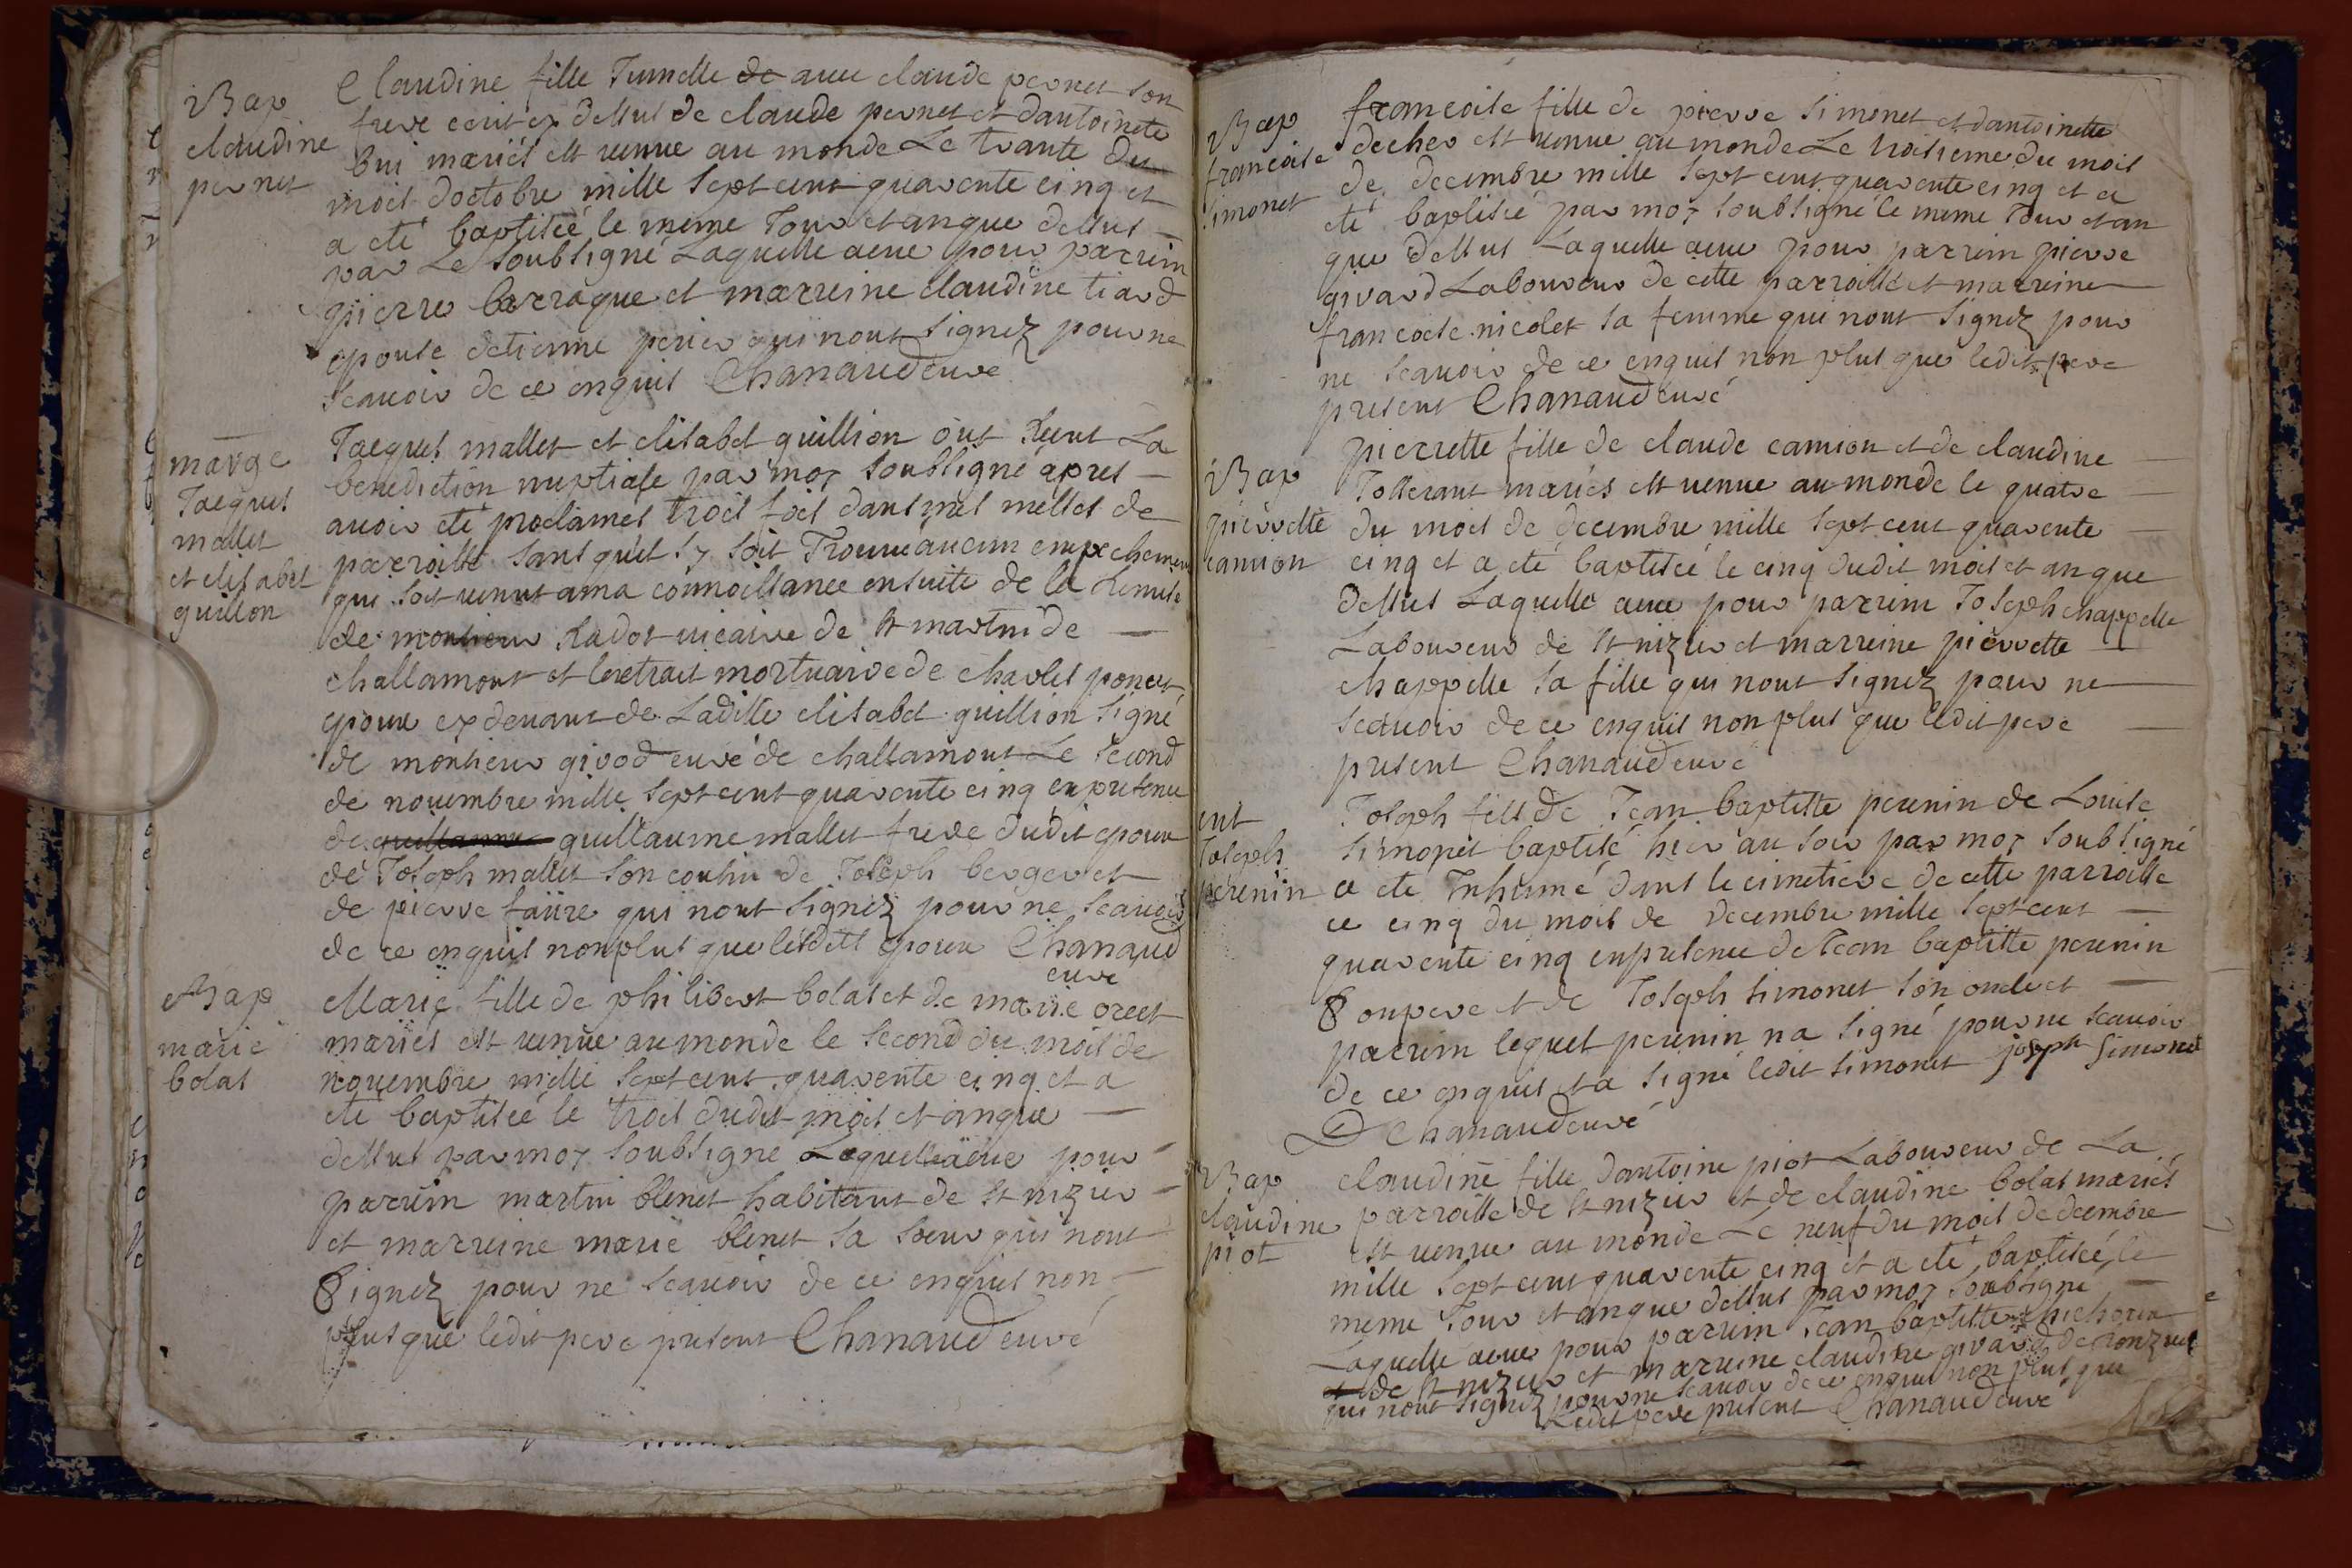 Bap
claudine
pernet
Claudine fille Jumelle de aüec claude pernet son
frere ecrit cy dessus de claude pernet et dantoinete
bui mariés est venue au monde Le trante du
mois doctobre mille sept cent quarente cinq et
a eté baptiseé le meme Jour et anque dessus
par Le soubsigné Laquelle aeue pour parrein
pierre barraque et marreine claudine tiard
epouse detienne perier qui nont signez pour ne
scauoir de ce enquis Chanaud curé
marge
Jacques
mallet
et elisabet
guillon
Jacques mallet et elisabet guillion ont Receut La
benediction nuptiale par moy soubsigné apres
auoir eté proclames trois fois dans mes messes de
parroisse sans quil sy soit Trouué aucun empechement
qui soit venut ama connoissance ensuite de la Remise
de monsieur Radot uicaire de st martin de
challamont et lextrait mortuaire de charles poncet
epoux ex deuant de Ladite elisabet guillion signé
de monsieur girod curé de challamont Le second
de nouembre mille sept cent quarente cinq en presence
de guillaume guillaume mallet frere dudit epoux
de Joseph mallet son cousin de Joseph berger et
de pierre faure qui nont signez pour ne scauoir
de ce enquis nonplus que lesdits epoux Chanaud
curé
Bap
marie
bolas
Marie fille de philibert bolas et de marie orcet
mariés est venüe au monde le second du mois de
nouembre mille sept cent quarente cinq et a
eté baptiseé le trois dudit mois et anque
dessus par moy soubsigné Laquelle aeue pour
parrein martin blenet habitant de st nizier
et marreine marie blenet sa soeur qui nont
Signez pour ne scauoir de ce enquis non
plus que ledit pere present Chanaud curé
Bap
francoise
simonet
francoise fille de pierre simonet et dantoinette
decher est venue au monde Le troisieme du mois
de decembre mille sept cent quarente cinq et a
eté baptiseé par moy soubsigné le meme Jour et an
que dessus Laquelle aeue pour parrein pierre
girard Laboureur de cette parroisse et marreine
francoise nicolet sa femme qui nont signez pour
ne scauoir de ce enquis non plus que ledit pere
present Chanaud curé
Bap
pierrette
camion
pierrette fille de claude camion et de claudine
Josserant mariés est venue au monde le quatre
du mois de decembre mille sept cent quarente
cinq et a eté baptiseé le cinq dudit mois et an que
dessus Laquelle aeue pour parrein Joseph chappelle
Laboureur de st nizier et marreine pierrette
chappelle sa fille qui nont signez pour ne
scauoir de ce enquis non plus que ledit pere
present Chanaud curé
ent
Joseph
perenin
Joseph fils de Jean baptiste perenin de Louise
simonet baptisé hier au soir par moy soubsigné
a eté Inhumé dans le cimetiere de cette parroisse
ce cinq du mois de Decembre mille sept cent
quarente cinq enpresence de Jean baptiste perenin
Son pere et de Joseph simonet son oncle et
parrein lequel perenin na signé pour ne scauoir
de ce enquis et a signé ledit simonet joseph simonet
Chanaud curé
Bap
claudine
piot
claudine fille dantoine piot Laboureur de La
parroisse de st nizier et de claudine bolas mariés
est venue au monde Le neuf du mois de decembre
mille sept cent quarente cinq et a eté baptiseé le
meme Jour et anque dessus par moy soubsigné
Laquelle aeue pour parrein Jean baptiste
de st nizier et marreine claudine girard de ronzuel
qui nont signez pour ne scauoir de ce enquis non plus que
Ledit pere present Chanaud curé